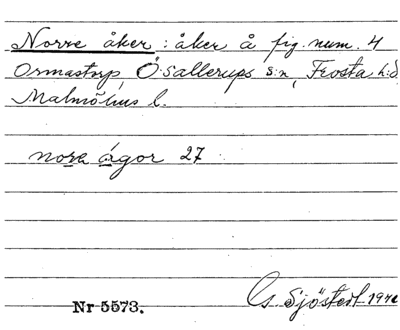 Norre åker : åker å fig. num. 4
Ormastorp, Ö. Sallerups s:n, Frosta h:d
Malmöhus l.
nora ågor 27
Nr 5573.
G. Sjöstedt